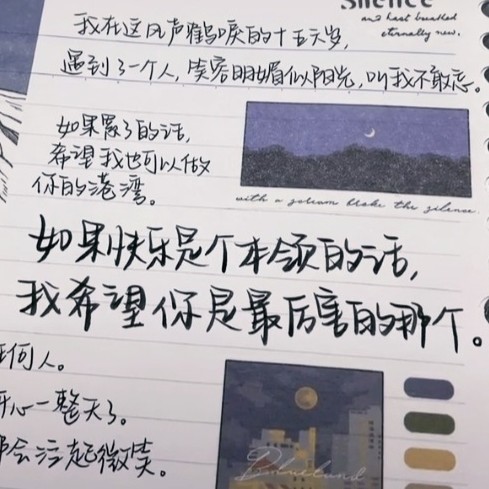 Silence
and hast breathed
eternally new.
我在这风声鹤唳的十五六岁,
遇到了一个人,笑容明媚似阳光,叫我不敢忘。
如果累了的话,
希望我也可以做
你的港湾。
with a scream broke the silence
如果快乐是个本领的话,
我希望你是最厉害的那个。
任何人。
开心一整天了。
都会泛起微笑。